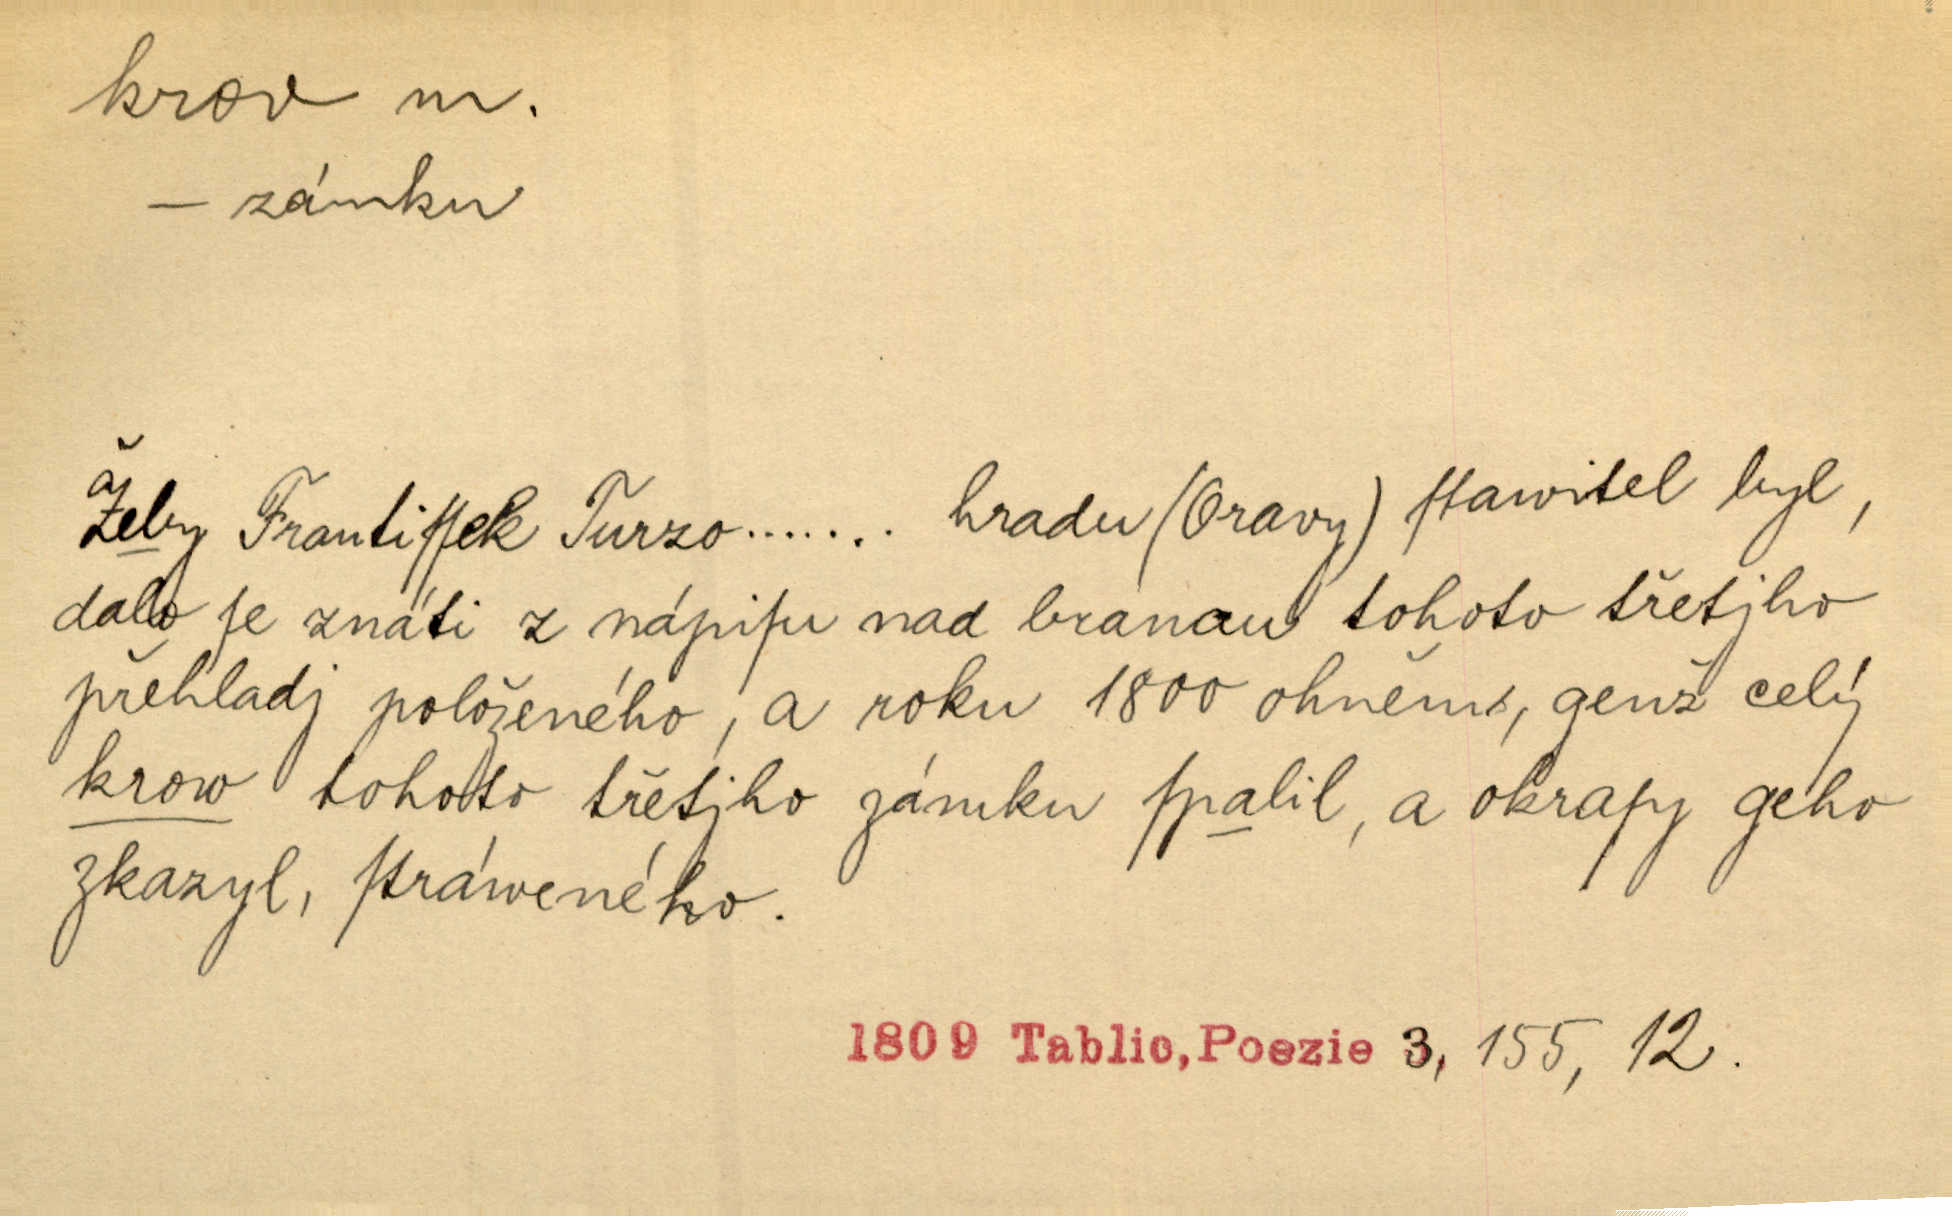 krov m.
– zámku
Žeby Frantiſſek Turzo....... hradu (Oravy) ſtawitel byl,
dalo ſe znáti z nápiſu nad branau tohoto třetjho
přehladj položeného, a roku 1800 ohněm, genž celý
krow tohoto třetjho zámku ſpalil, a okraſy geho
zkazyl, ſtráweného.
1809 Tablic, Poezie 3, 155, 12.